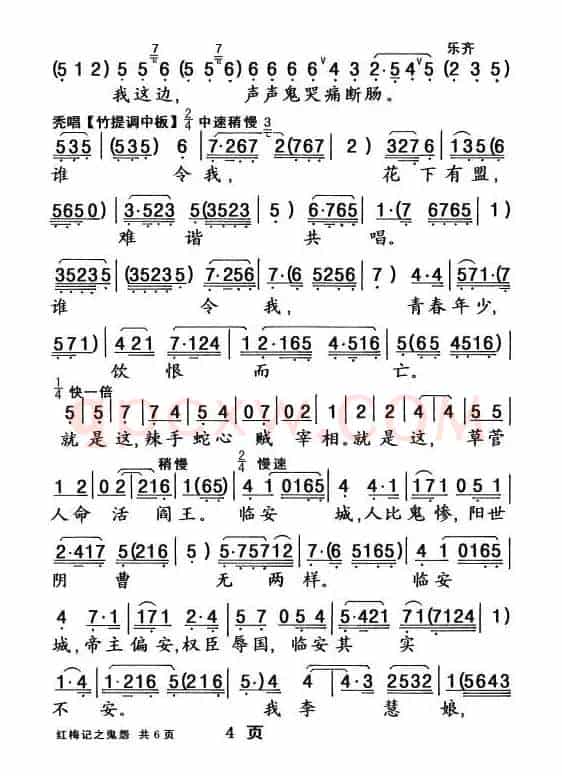 (5 1 2) 5 5 6 (5 5 6) 6 6 6 6 4 3 2·5 4 5 (2 3 5) 乐齐
我这边， 声声鬼哭痛断肠。
秃唱【竹提调中板】2/4 中速稍慢
535 | (535) 6 | 7·267 2(767 | 2) 3276 | 135(6
谁 令我， 花下有盟，
5650) | 3·523 5(3523 | 5) 6·765 | 1·(7 6765 | 1)
难谐 共唱。
35235 | (35235 7·256 | 7·(6 5256 | 7) 4·4 | 571·(7
谁 令我， 青春年少，
571) | 421 7·124 | 12·165 4·516 | 5(65 4516) |
饮恨 而 亡。
1/4 快一倍
5 5 | 7 | 7 4 | 5 4 | 07 | 02 | 1 | 2 4 | 5 5 |
就是这，辣手蛇心贼宰相。就是这，草菅
1 2 | 02 | 216 | 1(65) | 4 1 0165 | 4 4·6 | 171 0 5 1 |
稍慢 2/4 慢速
人命活阎王。临安 城，人比鬼惨，阳世
2·417 5(216 | 5) 5·75712 | 7·(6 5165) | 4 1 0165 |
阴曹 无两样。 临安
4 7·1 | 171 2·4 | 5 7 0 5 4 | 5·421 71(7124 | 1)
城，帝主偏安，权臣辱国，临安其 实
1·4 | 1·216 5(216 | 5) 3·2 | 3 1·2 | 1(5643
不安。 我李 慧娘，
红梅记之鬼怨 共6页 4 页